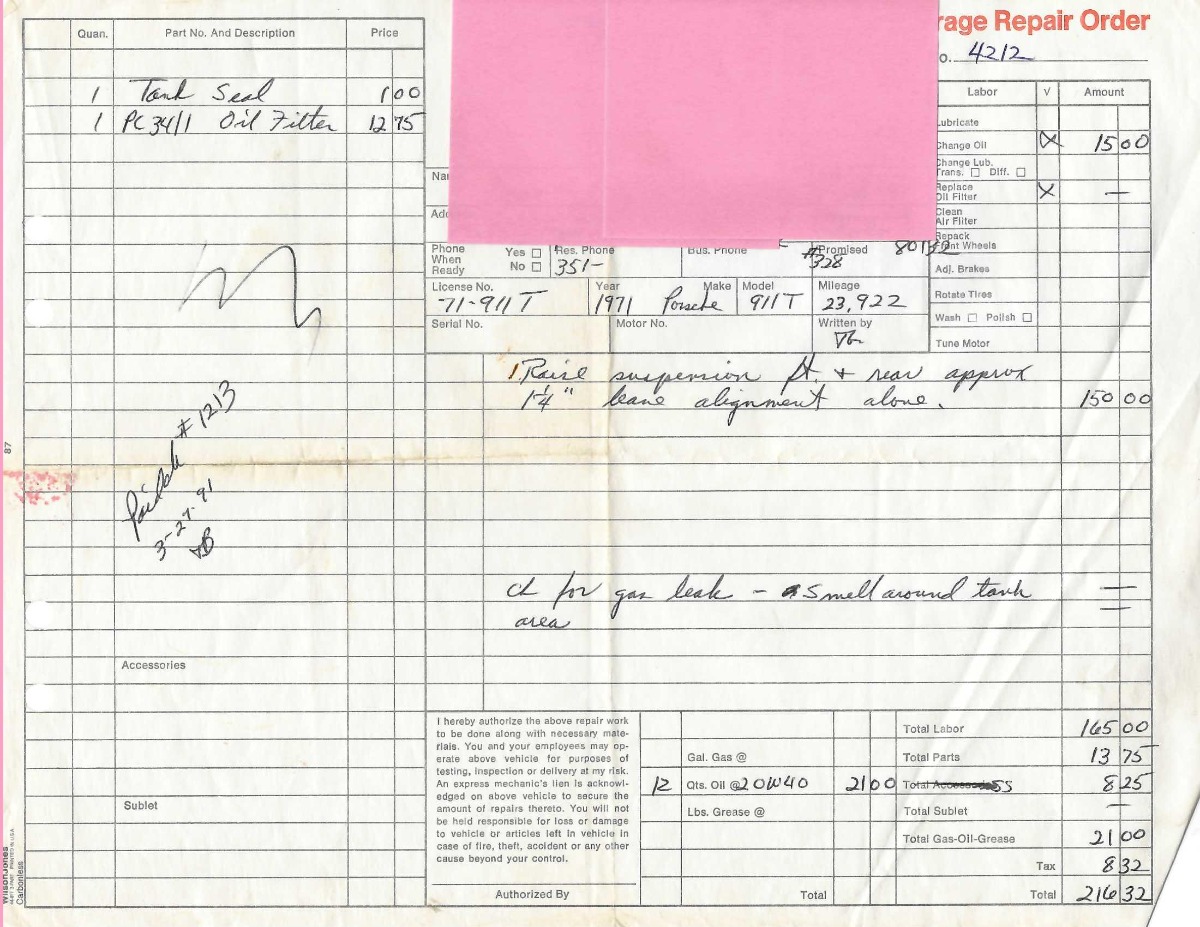 rage Repair Order
o. 4212
Quan. Part No. And Description Price
1 Tank Seal 1 00
1 PC 34/1 Oil Filter 12 75
Paid ck #1213
3-27-91
Accessories
Sublet
87
WilsonJones
Carbonless
Na
Add
Phone When Ready Yes ☐ No ☐
Res. Phone 351-
Bus. Phone
Promised
#328
801
License No. 71-911T
Year 1971
Make Porsche
Model 911T
Mileage 23,922
Serial No.
Motor No.
Written by
Labor √ Amount
Lubricate
Change Oil X 15 00
Change Lub.
Trans. ☐ Diff. ☐
Replace
Oil Filter X —
Clean
Air Filter
Repack
Front Wheels
Adj. Brakes
Rotate Tires
Wash ☐ Polish ☐
Tune Motor
1. Raise suspension ft. + rear approx
1 1/4" leave alignment alone. 150 00
ck for gas leak - smell around tank —
area —
I hereby authorize the above repair work
to be done along with necessary mate-
rials. You and your employees may op-
erate above vehicle for purposes of
testing, inspection or delivery at my risk.
An express mechanic's lien is acknowl-
edged on above vehicle to secure the
amount of repairs thereto. You will not
be held responsible for loss or damage
to vehicle or articles left in vehicle in
case of fire, theft, accident or any other
cause beyond your control.
Authorized By
Gal. Gas @
12 Qts. Oil @ 20W40 21 00
Lbs. Grease @
Total
Total Labor 165 00
Total Parts 13 75
Total Accessories SS 8 25
Total Sublet —
Total Gas-Oil-Grease 21 00
Tax 8 32
Total 216 32